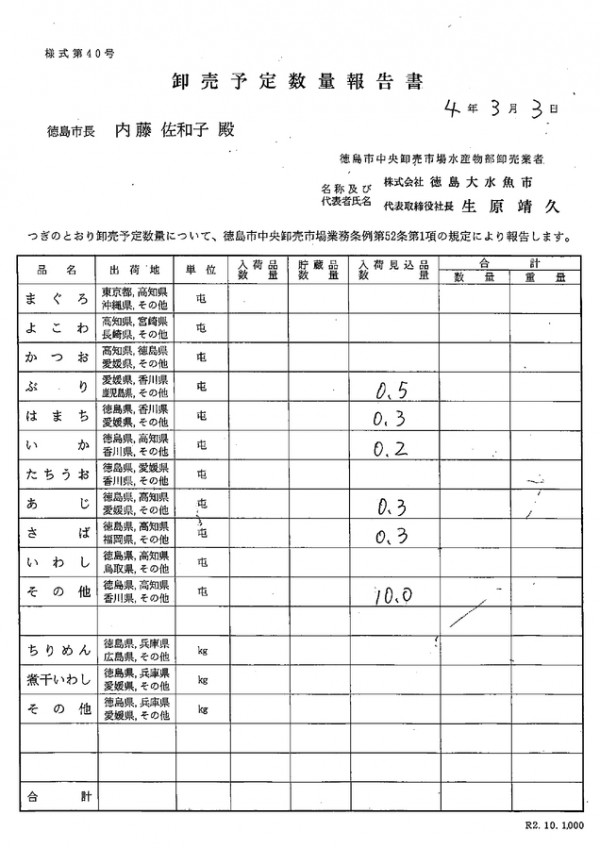 様式第40号
卸売予定数量報告書
4年3月3日
徳島市長 内藤 佐和子 殿
徳島市中央卸売市場水産物部卸売業者
名称及び 株式会社 徳島大水魚市
代表者氏名 代表取締役社長 生原靖久
つぎのとおり卸売予定数量について、徳島市中央卸売市場業務条例第52条第1項の規定により報告します。
品名 出荷地 単位 入荷品数量 貯蔵品数量 入荷見込品数量 合計
数量 重量
まぐろ 東京都, 高知県 沖縄県, その他 屯
よこわ 高知県, 宮崎県 長崎県, その他 屯
かつお 高知県, 徳島県 愛媛県, その他 屯
ぶり 愛媛県, 香川県 鹿児島県, その他 屯 0.5
はまち 徳島県, 香川県 愛媛県, その他 屯 0.3
いか 徳島県, 高知県 香川県, その他 屯 0.2
たちうお 徳島県, 愛媛県 香川県, その他 屯
あじ 徳島県, 高知県 愛媛県, その他 屯 0.3
さば 徳島県, 高知県 福岡県, その他 屯 0.3
いわし 徳島県, 高知県 鳥取県, その他 屯
その他 徳島県, 高知県 香川県, その他 屯 10.0
ちりめん 徳島県, 兵庫県 広島県, その他 kg
煮干いわし 徳島県, 兵庫県 愛媛県, その他 kg
その他 徳島県, 兵庫県 愛媛県, その他 kg
合計
R2. 10. 1,000